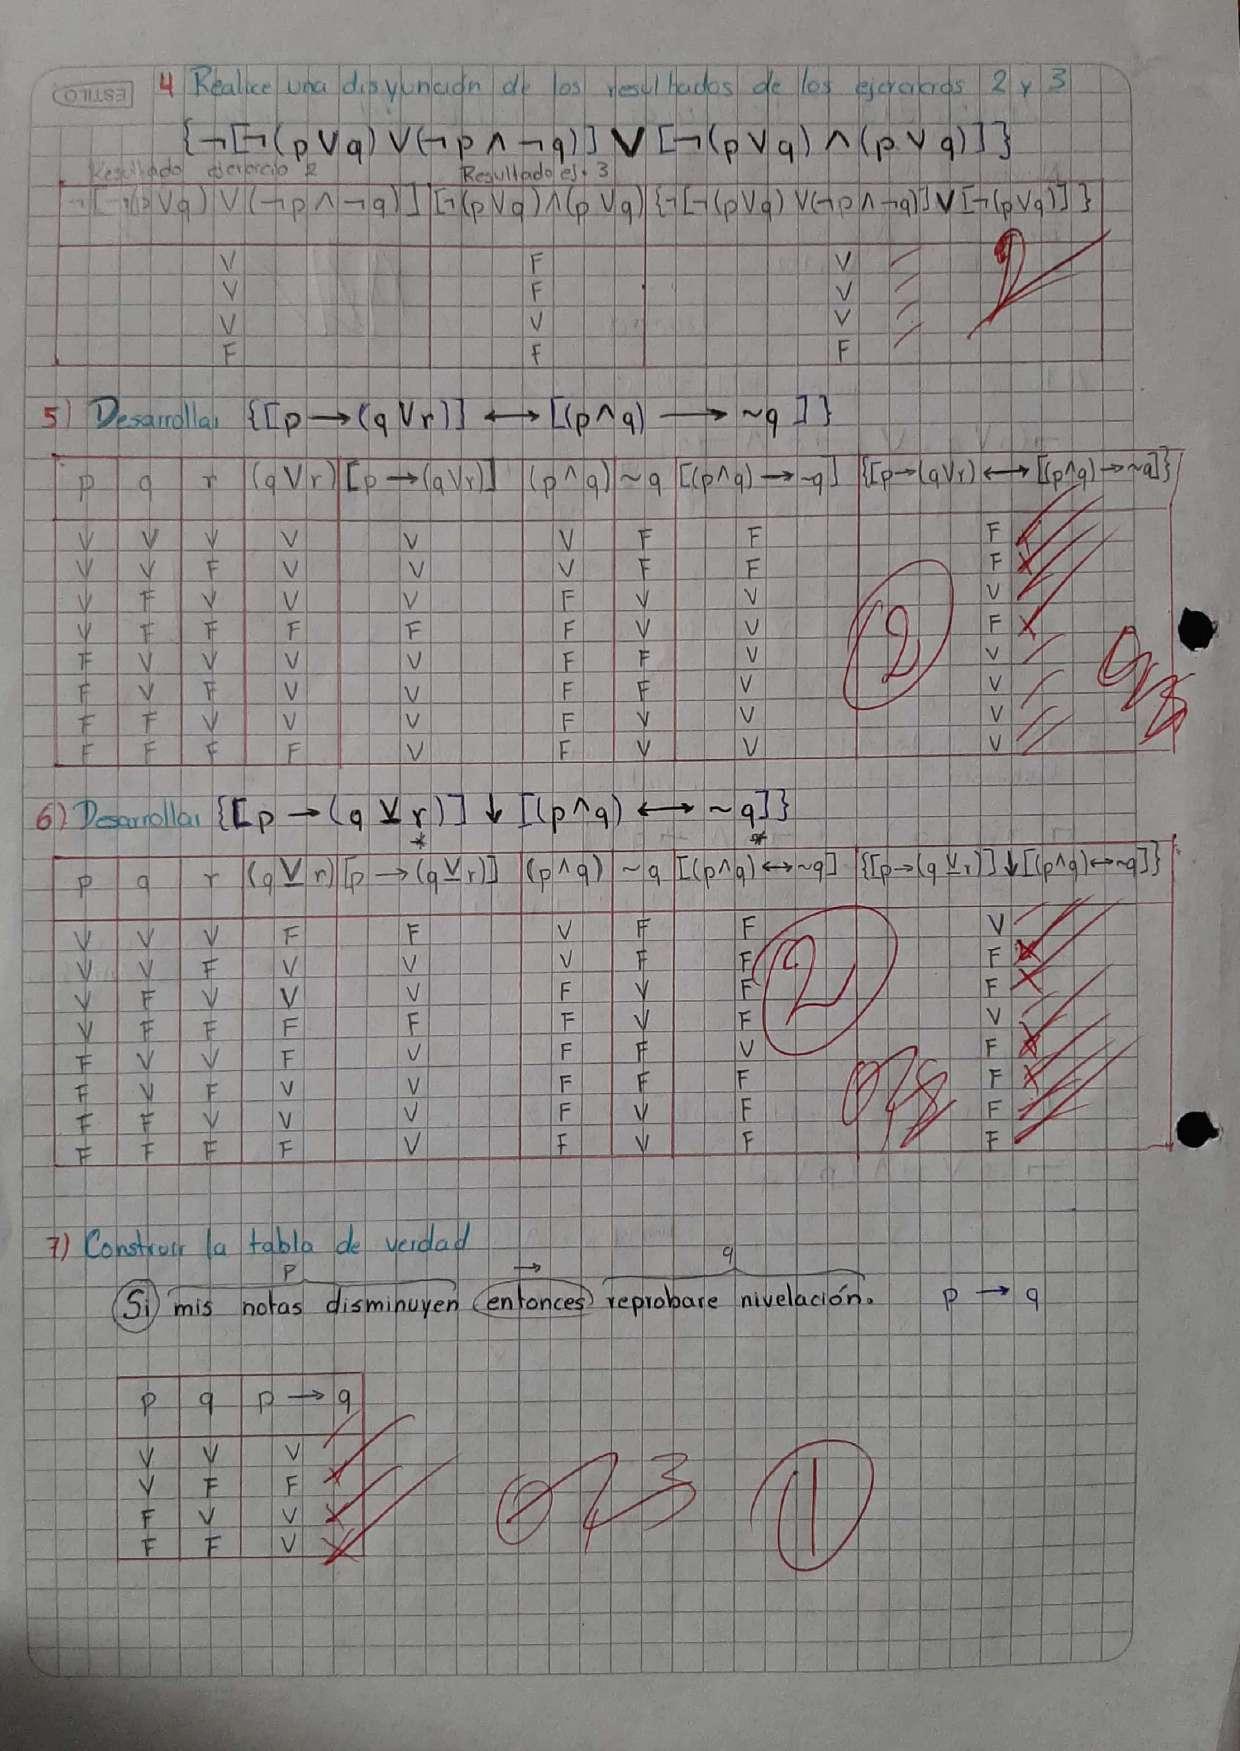 ESTILO
4 Realice una disyunción de los resultados de los ejercicios 2 y 3
{¬[¬(p∨q) ∨(¬p ∧ ¬q)] ∨ [¬(p∨q) ∧(p ∨q)]}
Resultado ejercicio 2 Resultado ej. 3
¬[¬(p∨q) ∨(¬p ∧ ¬q)] [¬(p∨q)∧(p ∨q) {¬[¬(p∨q) ∨(¬p∧¬q)]∨[¬(p∨q)]}
V F V
V F V 2
V V V
F F F
5) Desarrollar {[p→(q∨r)] ⟷ [(p∧q) ⟶ ~q]}
p q r (q∨r) [p→(q∨r)] (p∧q) ~q [(p∧q)→~q] {[p→(q∨r) ⟷ [(p∧q)→~q]}
V V V V V V F F F
V V F V V V F F F
V F V V V F V V V
V F F F F F V V 2 F
F V V V V F F V V
F V F V V F F V V
F F V V V F V V V
F F F F V F V V V
6) Desarrollar {[p→(q ⊻ r)] ↓ [(p∧q) ⟷ ~q]}
* *
p q r (q⊻r) [p→(q⊻r)] (p∧q) ~q [(p∧q)↔~q] {[p→(q⊻r)]↓[(p∧q)↔~q]}
V V V F F V F F V
V V F V V V F F 2 F
V F V V V F V F F
V F F F F F V F V
F V V F V F F V F
F V F V V F F F F
F F V V V F V F F
F F F F V F V F F
7) Construir la tabla de verdad
p → q
Si mis notas disminuyen entonces reprobare nivelación. p → q
p q p → q
V V V
V F F
F V V 1
F F V